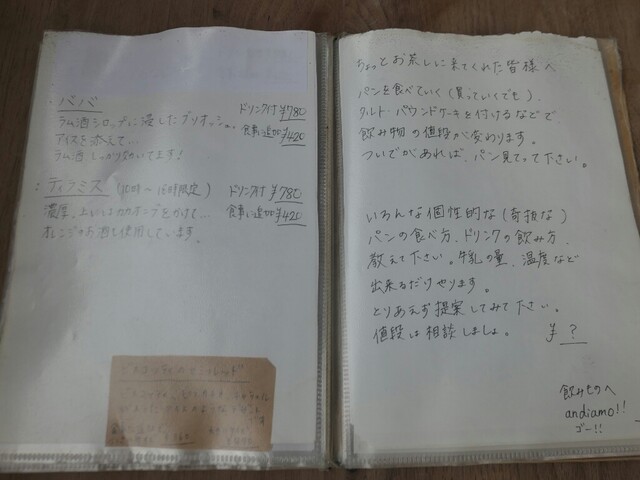 ・ババ ドリンク付 ¥780
ラム酒シロップに浸したブリオッシュ、 食事に追加 ¥420
アイスを添えて…
ラム酒しっかり効いてます!
・ティラミス (10時〜16時限定) ドリンク付 ¥780
濃厚、上にはカカオニブをかけて… 食事に追加 ¥420
オレンジのお酒も使用しています。
ちょっとお茶しに来てくれた皆様へ
パンを食べていく(買っていくでも)、
タルト・パウンドケーキを付けるなどで
飲み物の値段が変わります。
ついでがあれば、パン見てって下さい。
いろんな個性的な(奇抜な)
パンの食べ方、ドリンクの飲み方、
教えて下さい。牛乳の量、温度など
出来るだけやります。
とりあえず提案してみて下さい。
値段は相談しましょ。 ¥ ?
飲みものへ
andiamo!!
ゴー!!